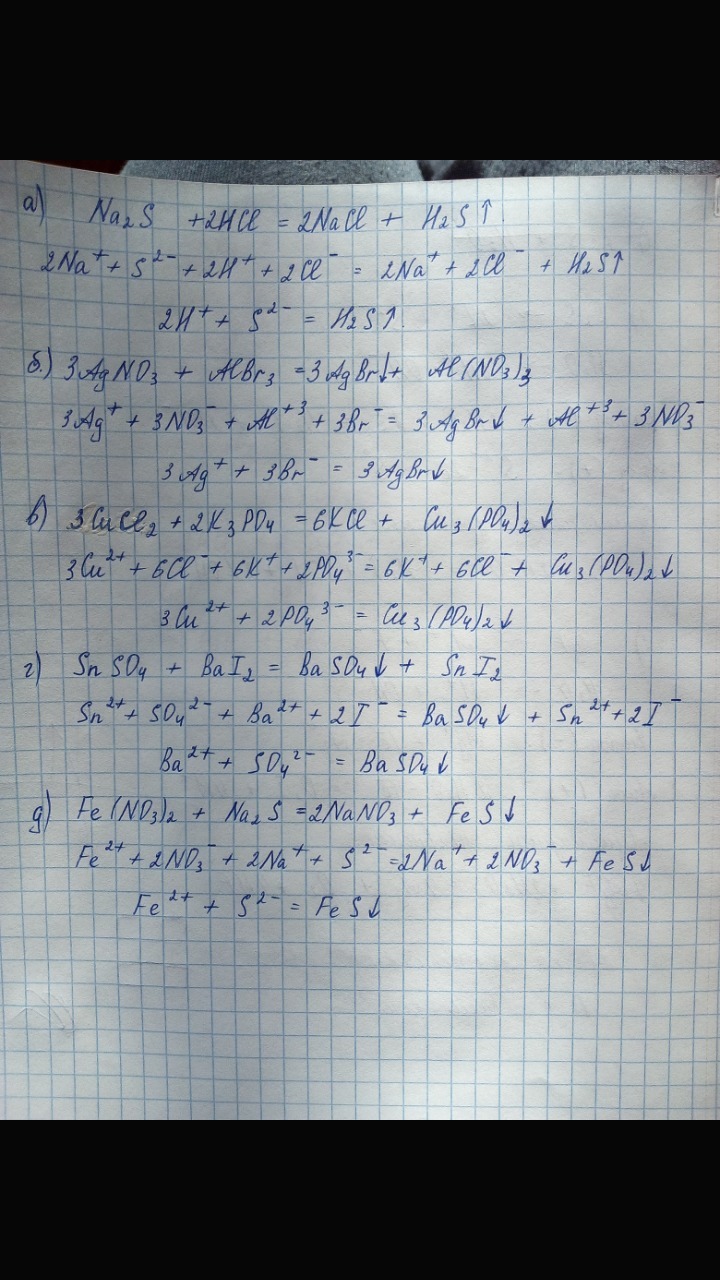 а) Na₂S + 2HCl = 2NaCl + H₂S↑
2Na⁺ + S²⁻ + 2H⁺ + 2Cl⁻ = 2Na⁺ + 2Cl⁻ + H₂S↑
2H⁺ + S²⁻ = H₂S↑.
б.) 3AgNO₃ + AlBr₃ = 3AgBr↓ + Al(NO₃)₃
3Ag⁺ + 3NO₃⁻ + Al⁺³ + 3Br⁻ = 3AgBr↓ + Al⁺³ + 3NO₃⁻
3Ag⁺ + 3Br⁻ = 3AgBr↓
в) 3CuCl₂ + 2K₃PO₄ = 6KCl + Cu₃(PO₄)₂↓
3Cu²⁺ + 6Cl⁻ + 6K⁺ + 2PO₄³⁻ = 6K⁺ + 6Cl⁻ + Cu₃(PO₄)₂↓
3Cu²⁺ + 2PO₄³⁻ = Cu₃(PO₄)₂↓
г) SnSO₄ + BaI₂ = BaSO₄↓ + SnI₂
Sn²⁺ + SO₄²⁻ + Ba²⁺ + 2I⁻ = BaSO₄↓ + Sn²⁺ + 2I⁻
Ba²⁺ + SO₄²⁻ = BaSO₄↓
д) Fe(NO₃)₂ + Na₂S = 2NaNO₃ + FeS↓
Fe²⁺ + 2NO₃⁻ + 2Na⁺ + S²⁻ = 2Na⁺ + 2NO₃⁻ + FeS↓
Fe²⁺ + S²⁻ = FeS↓